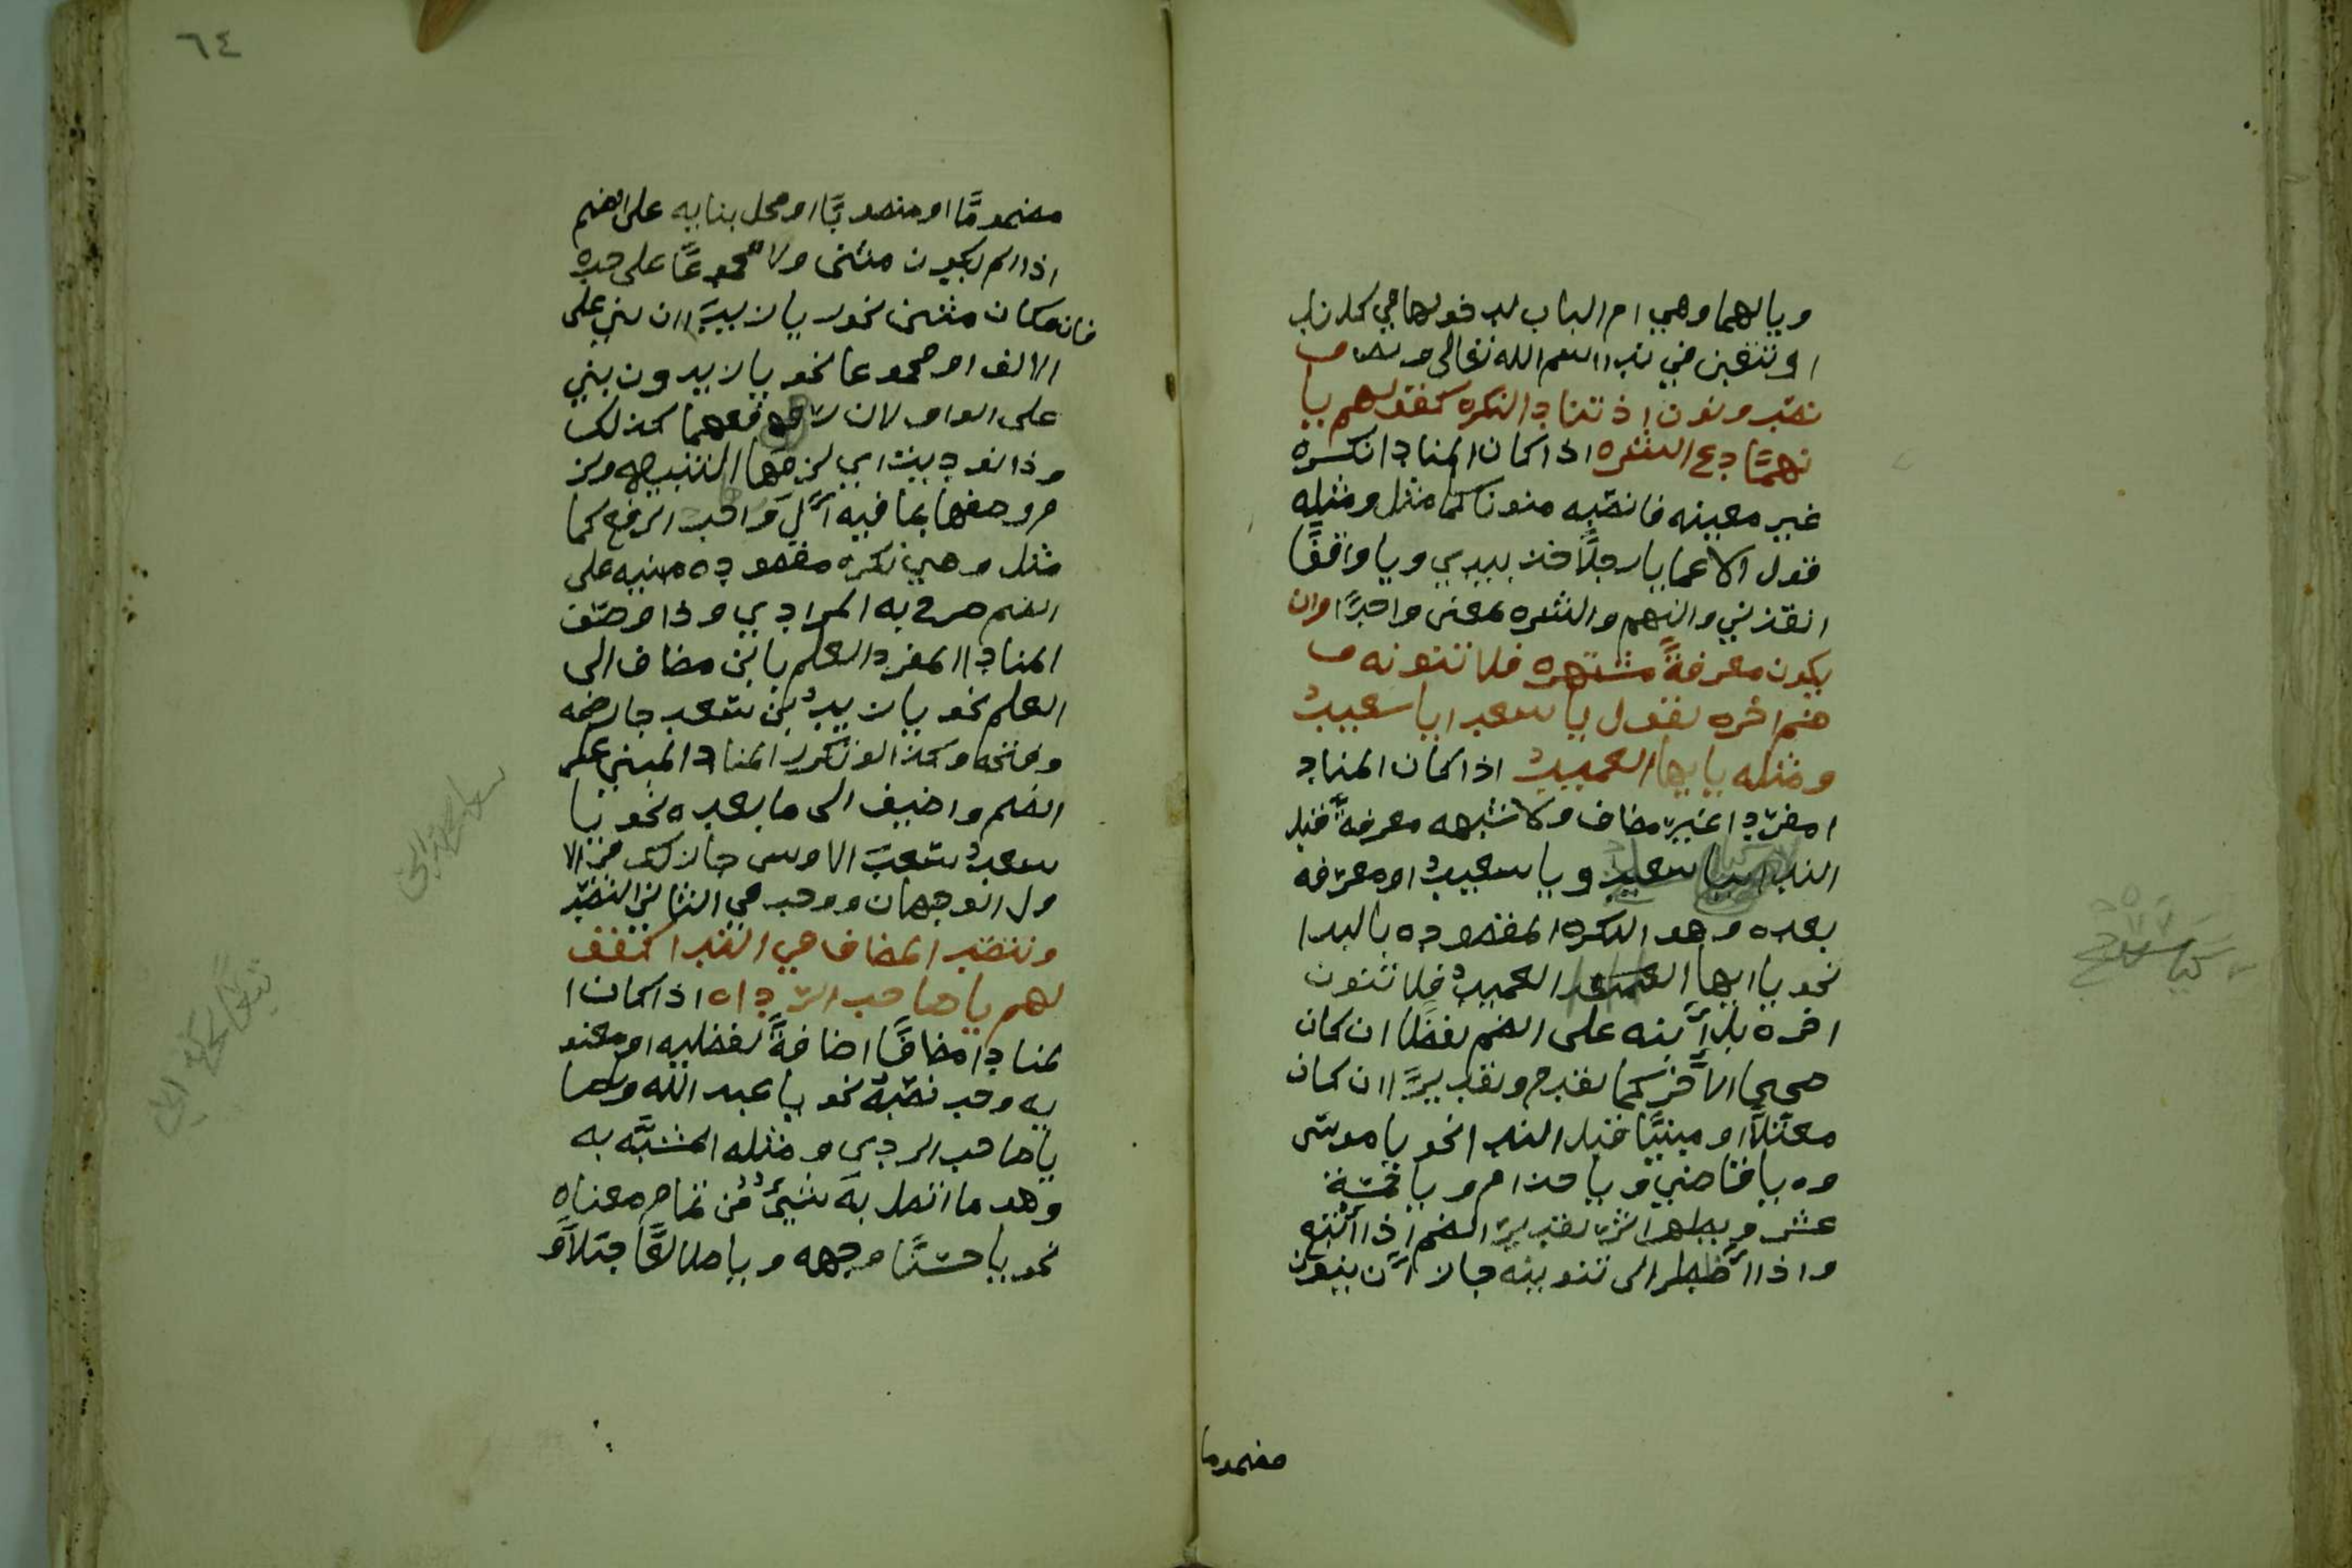 ويالهما وهي ام الباب لدخولها في كل ندا
او تتعين في ندا اسم الله تعالى ص
نصب ونون اذ تناد النكره كقولهم يا
نهما دع الشره اذا كان المنادا نكره
غير معينه فانصبه منونا كما مثل ومثله
قول الاعما يا رجلا خذ بيدي ويا واقفا
انقذني والنهم والشره بمعنى واحدا وان
يكون معرفة مشتهره فلا تنونه و
ضم اخره تقول يا سعد ايا سعيد
ومثله يا ايها العميد اذا كان المناد
ا مفردا غير مضاف ولا شبهه معرفة قبل
الندا يا سعيد ويا سعيد او معرفه
بعده وهو النكره المقصوده بالندا
نحو يا ايها العميد فلا تنون
اخره بل ابنه على الضم لفظا ان كان
صحيح الاخر كما تقدم وتقديرا ان كان
معتلا او مبنيا قبل الندا نحو يا موسى
وه يا قاضي ويا حذام ويا خمسة
عشر ويظهر اثر تقدير الضم اذا اتبع
واذا اظطر الى تنوينه جاز ان ينون
مضموما
٦٤
مضموما او منصوبا او محل بنايه على الضم
اذا لم يكون مثنى ولا مجموعا على حده
فان كان مثنى نحو يا زيدا ان بني على
الالف او مجموعا نحو يا زيدون بني
على الواو لان رفعهما كذلك
وذا نود يت اي لزمها التنبيه ولز
م وصفها بما فيه ال واجب الرفع كما
مثل وهي نكره مقصوده مبنيه على
الضم صرح به المرادي وذا وصف
المناد المفرد العلم بابن مضاف الى
العلم نحو يا زيد بن سعد جاز ضمه
وفتحه وكذا لو تكرر المناد المبني على
الضم واضيف الى ما بعده نحو يا
سعد سعد الاوس جاز لك في الا
ول الوجهان ووجب في الثاني النصب
وتنصب المضاف في الندا كقو
لهم يا صاحب الرداه اذا كان ا
لمنادا مضافا اضافة لفظيه او معنو
يه وجب نصبه نحو يا عبد الله و
يا صاحب الردي ومثله المشبه به
وهو ما اتصل به شيئ من تمام معناه
نحو يا حسنا وجهه ويا طالعا جبلا و